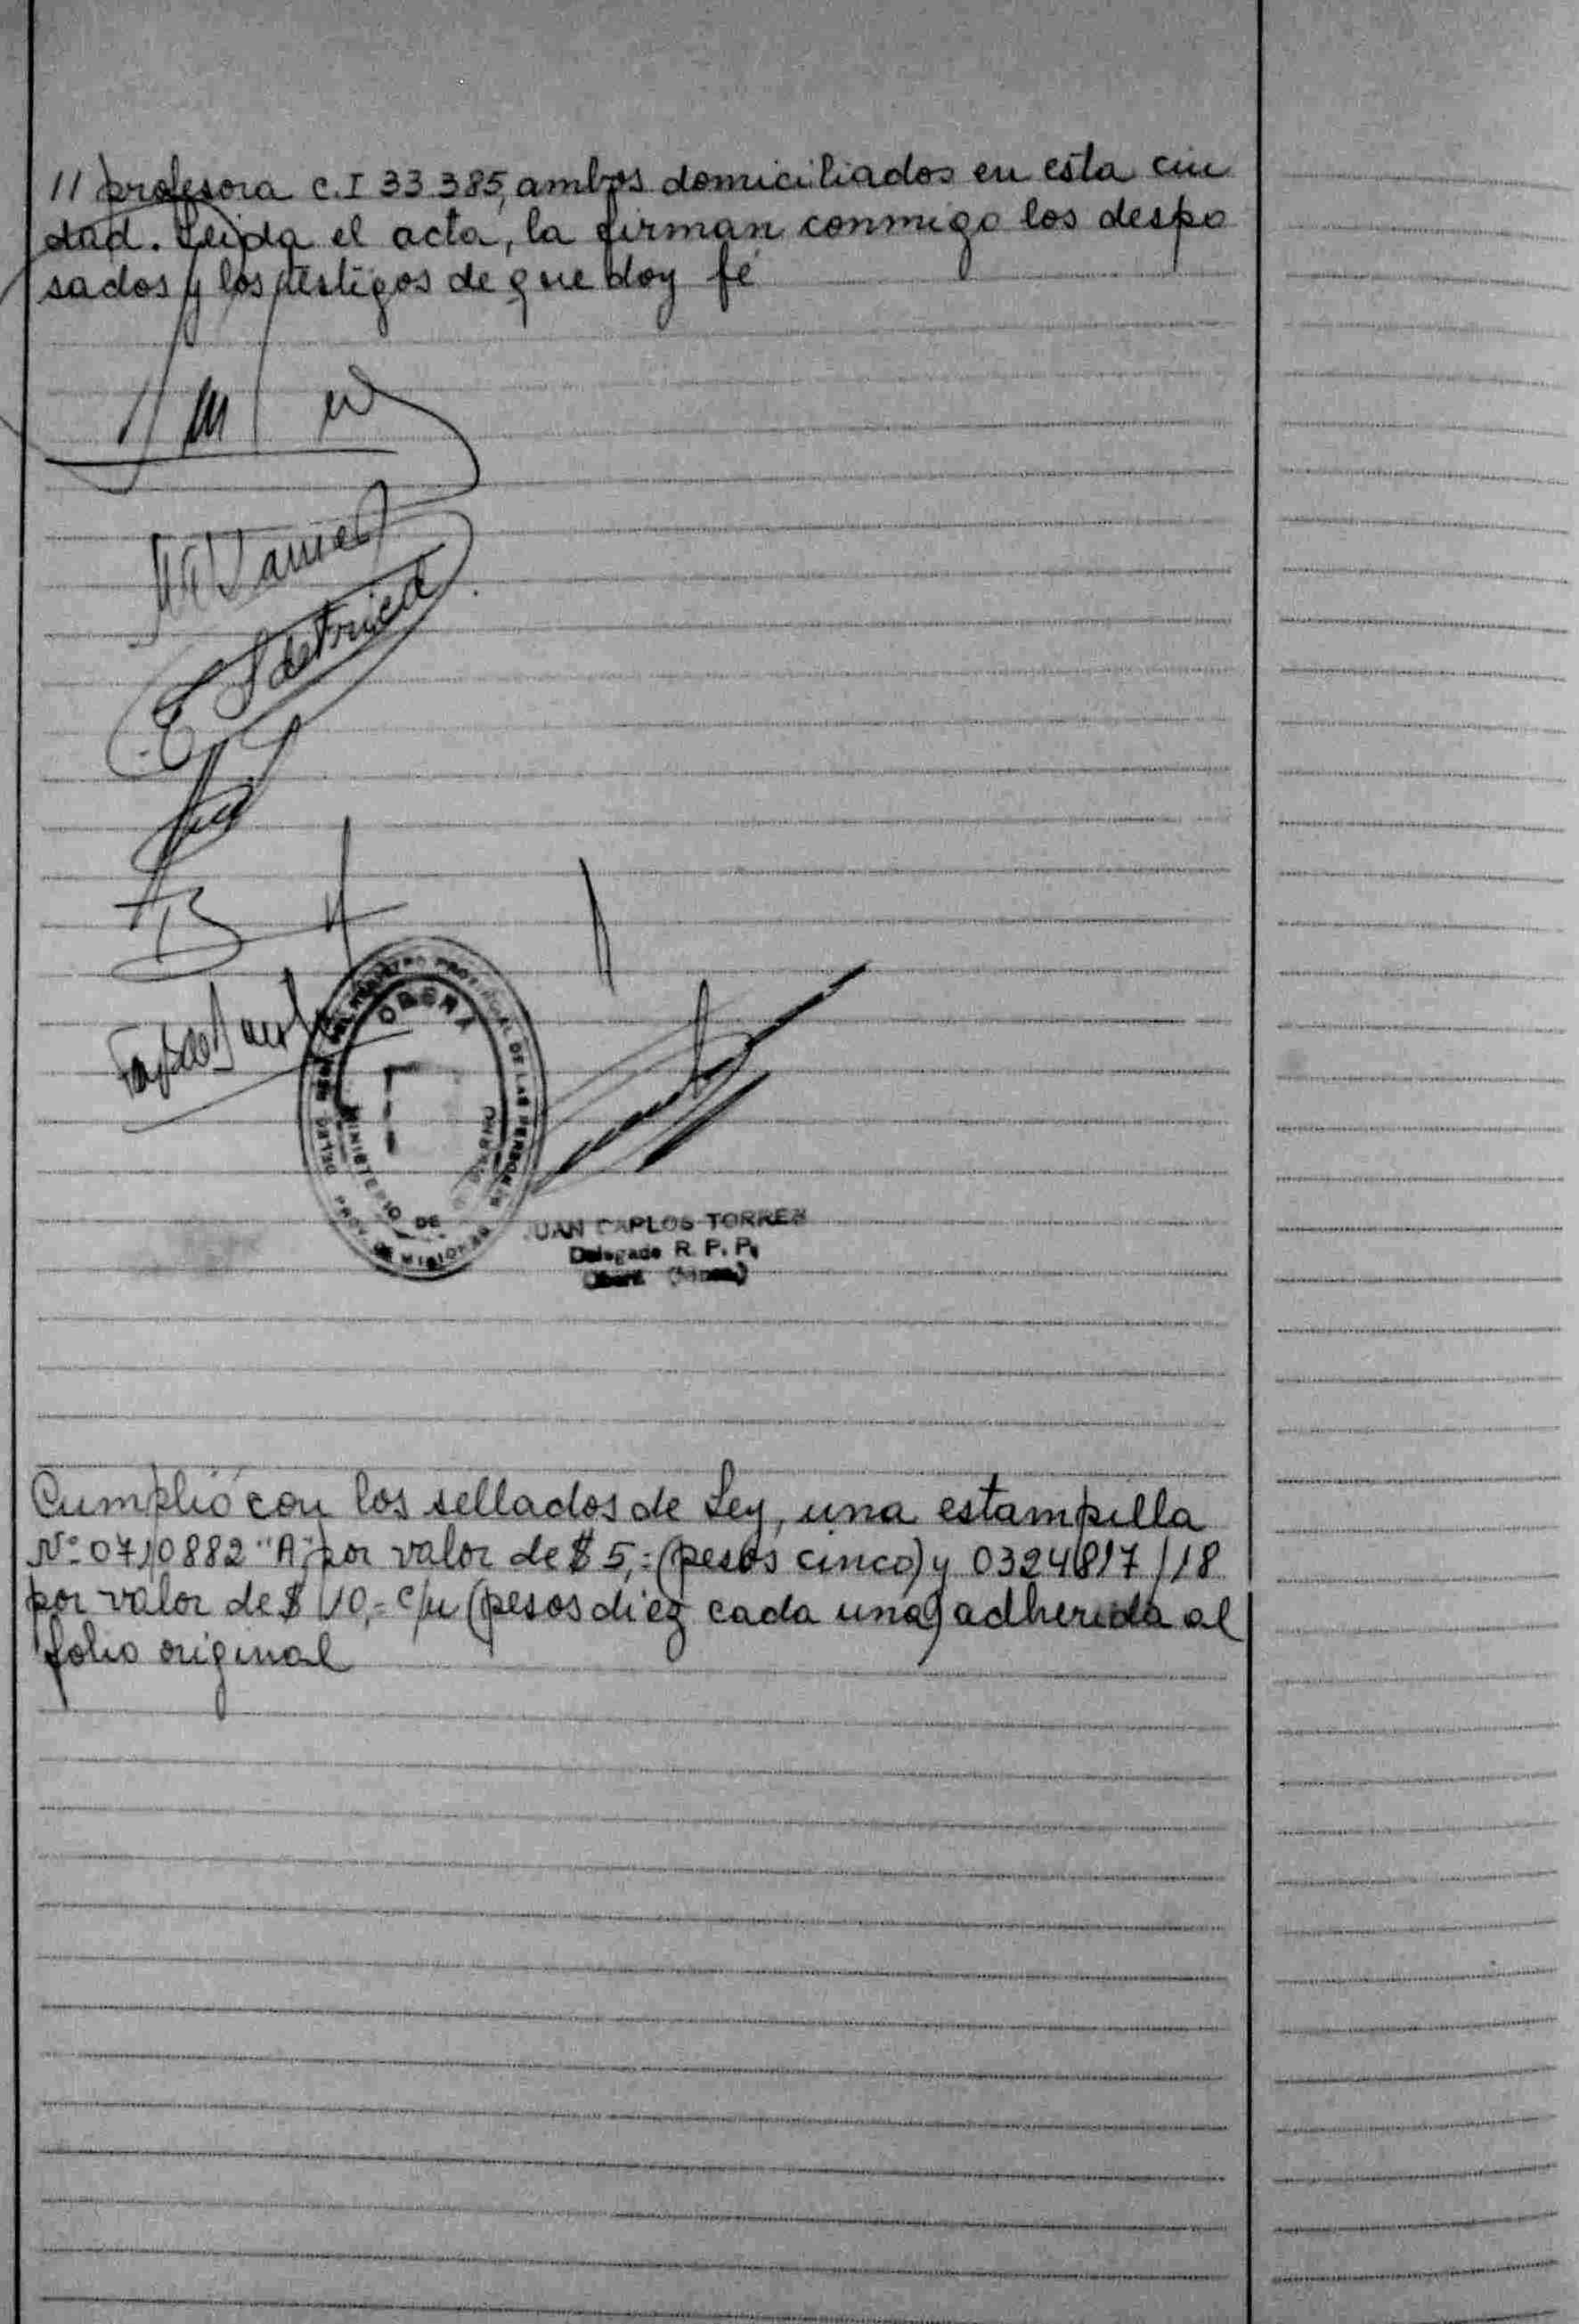 // profesora c.I 33.385, ambos domiciliados en esta ciu
dad. Leida el acta, la firman conmigo los despo
sados y los testigos de que doy fé
OBERA
MINISTERIO DE
PROV. DE MISIONES
JUAN CARLOS TORRES
Delegado R. P. P.
Cumplió con los sellados de Ley, una estampilla
Nº 0710882 "A" por valor de $ 5,= (pesos cinco) y 0324817/18
por valor de $ 10,= c/u (pesos diez cada una) adherida al
folio original